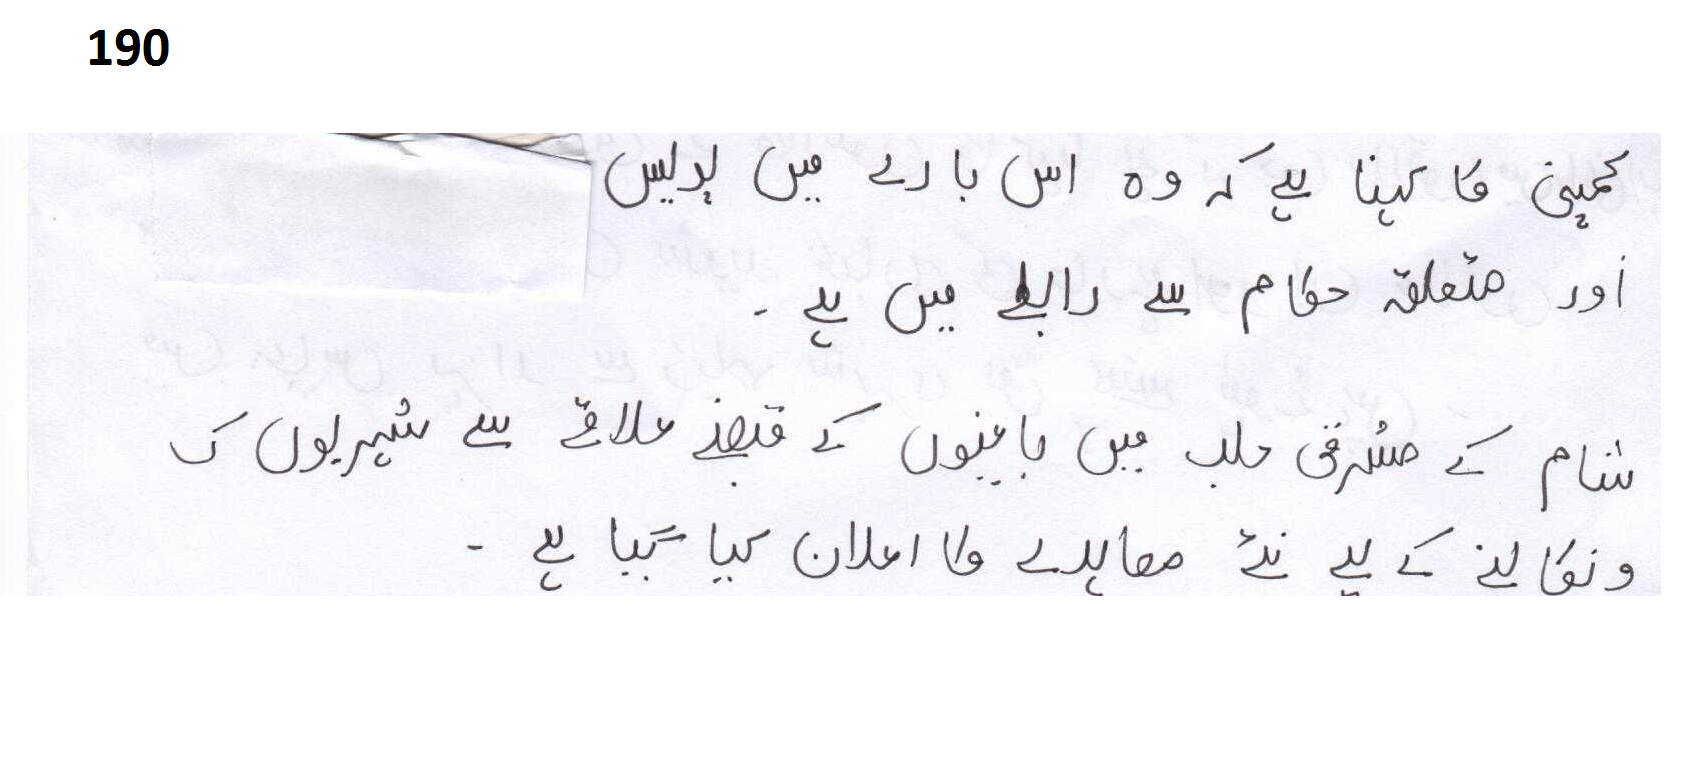 190
کمپنی کا کہنا ہے کہ وہ اس بارے میں پولیس
اور متعلقہ حکام سے رابطے میں ہے ۔
شام کے مشرقی حلب میں باغیوں کے قبضے علاقے سے شہریوں ک
و نکالنے کے لیے نئے معاہدے کا اعلان کیا گیا ہے ۔